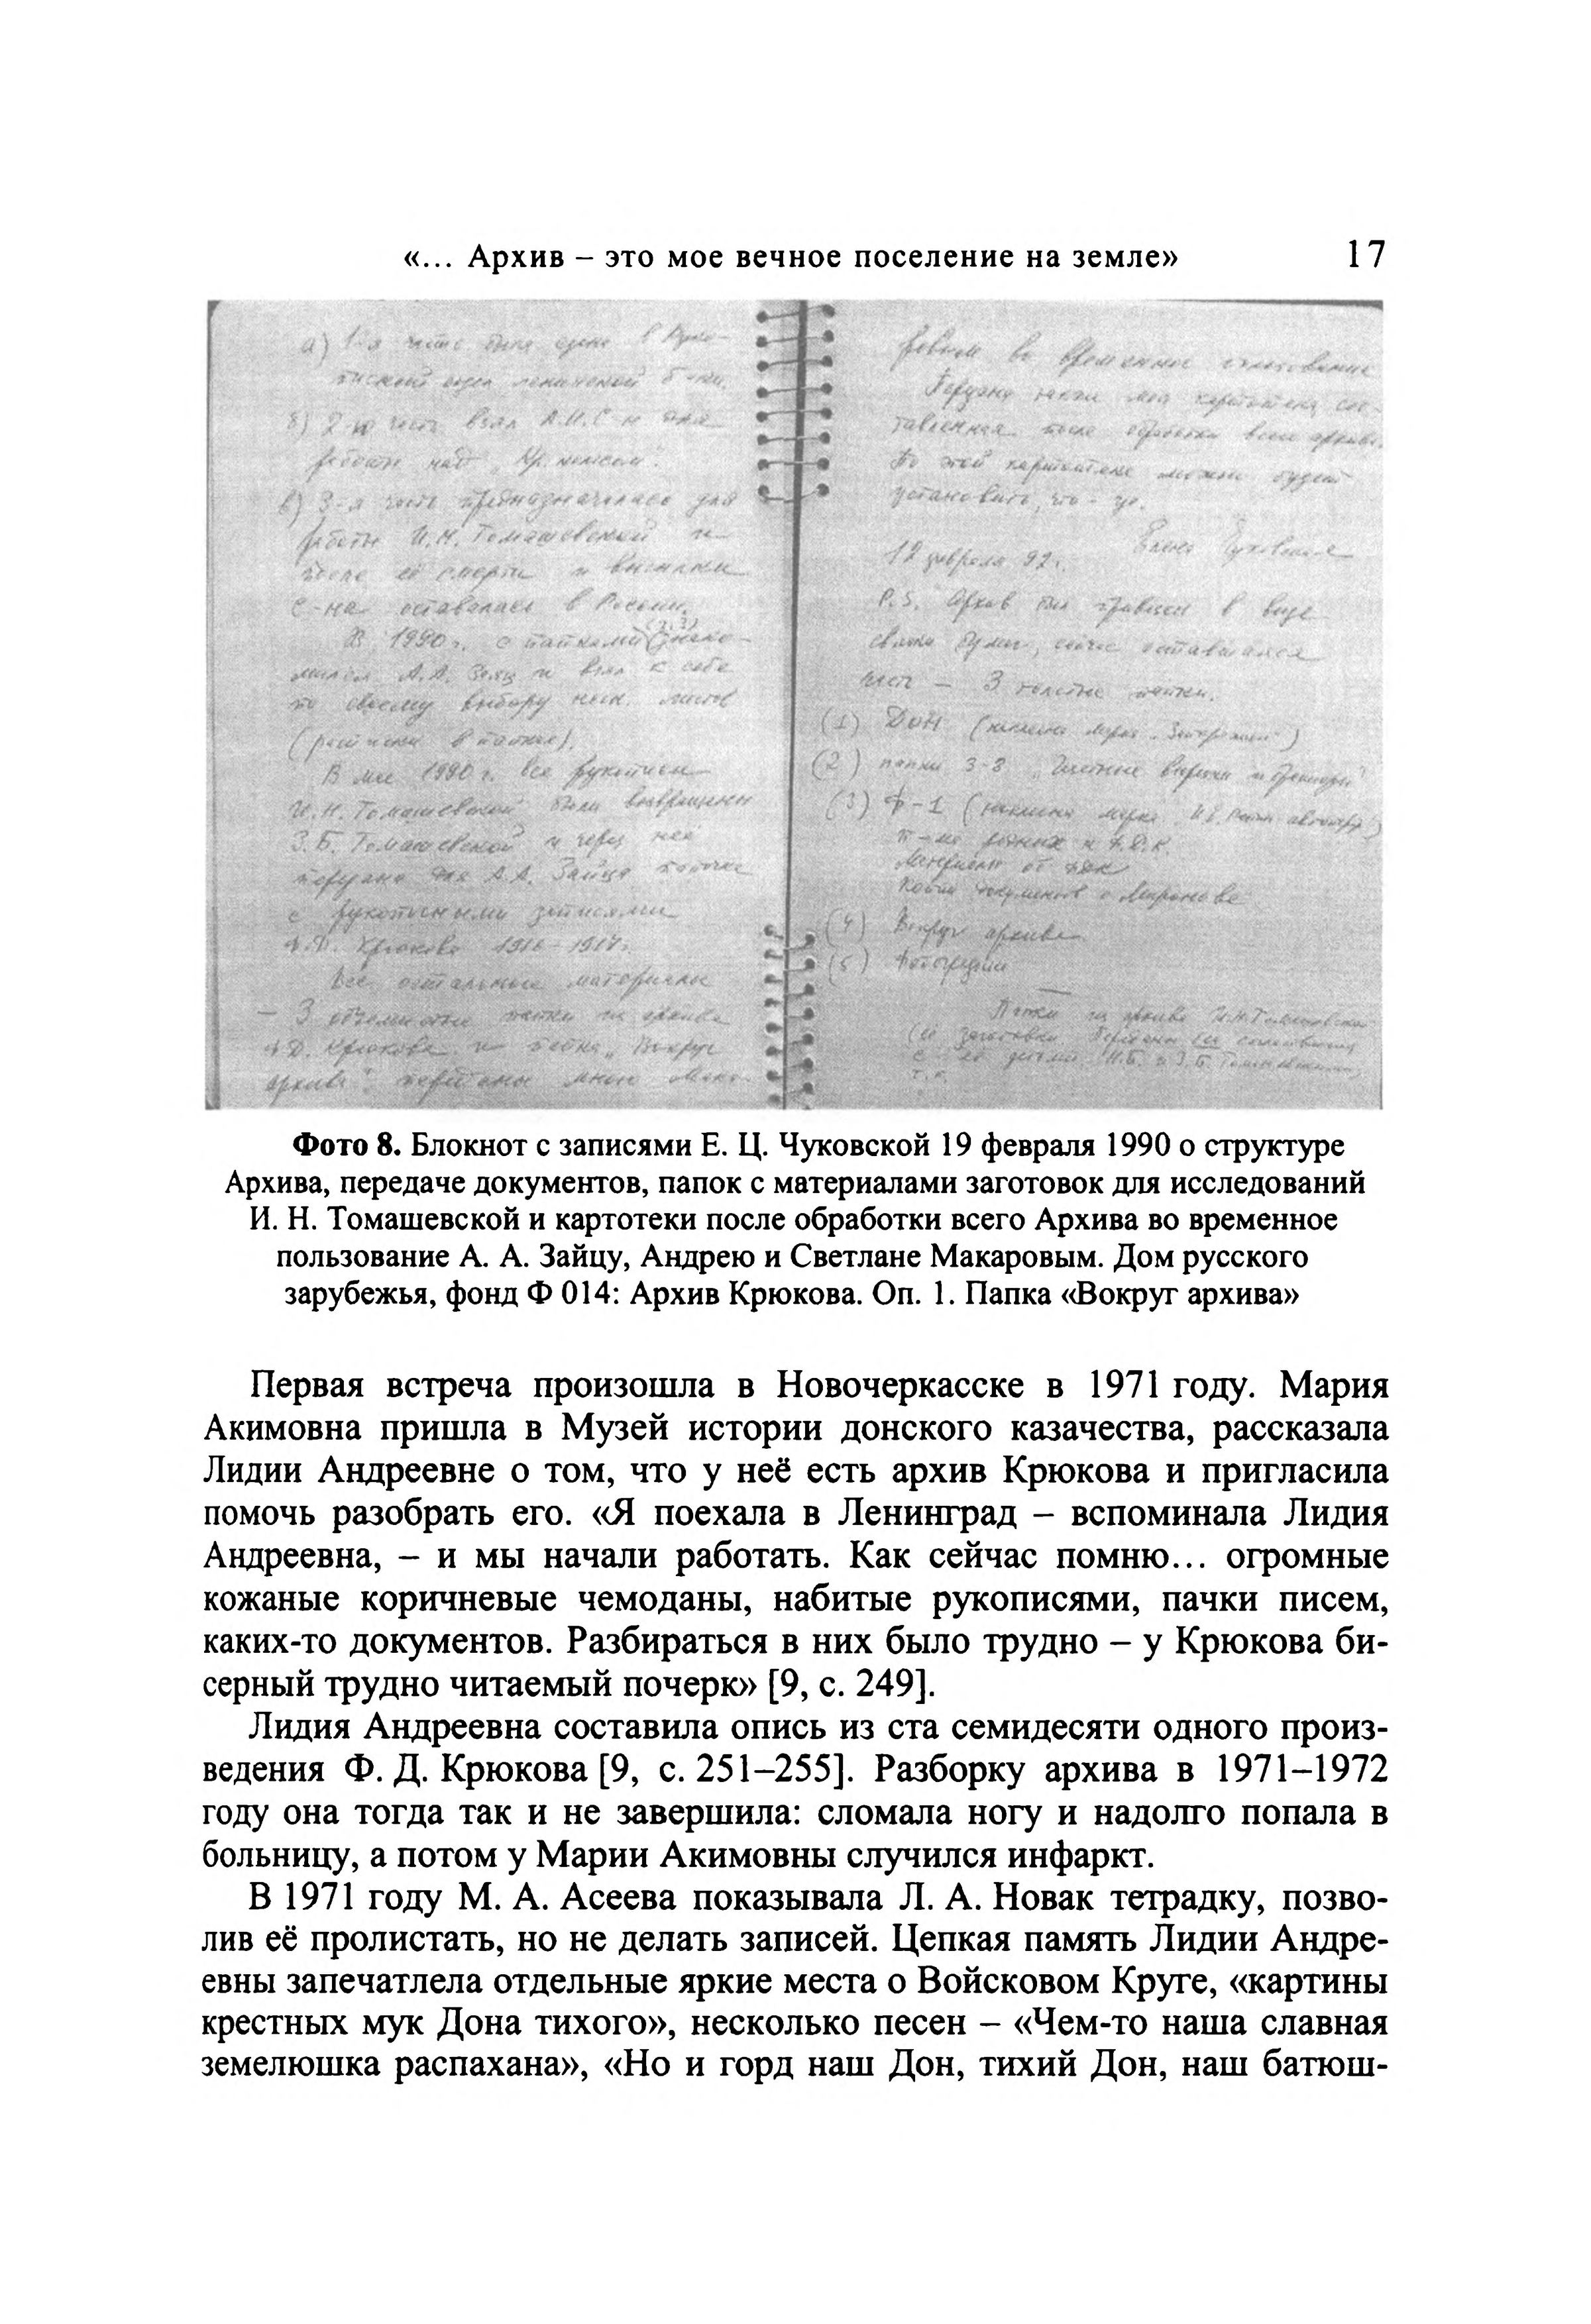 «... Архив – это мое вечное поселение на земле» 17
а) 1-я часть была сдана в Руко-
писный отдел ленинской б-ки.
б) 2-ю часть взял А.И.С-н для
работы над „Кр. колесом".
в) 3-я часть предназначалась для
работы И.Н. Томашевской и
после её смерти и высылки
С-на оставалась в России.
В 1990 г. с папками (2, 3) ознако-
мился А.А. Заяц и взял к себе
по своему выбору неск. листов
(расписки в папке).
В мае 1990 г. все рукописи
И.Н. Томашевской были возвращены
З.Б. Томашевской и через неё
передана для А.А. Зайца папочка
с рукописными записями
Ф.Д. Крюкова 1916–1917 г.
Все остальные материалы
– 3 объемистые папки из архива
Ф.Д. Крюкова и папка „Вокруг
архива" переданы мною Мака-
ровым во временное пользование
Передана также моя картотека, сос-
тавленная после обработки всего архива.
По этой картотеке можно будет
установить, что – где.
Елена Чуковская
12 февраля 92 г.
P.S. Архив был привезен в виде
свалки бумаг, сейчас оставшаяся
часть – 3 толстые папки.
(1) Дон
(2) папки 3-8
(3) Ф-1
п-ма родных к Ф.Д.К.
Материалы от ФДК
Копии документов о Миронове
(4) Вокруг архива
(5) Фотографии
Папки из архива И.Н. Томашевской
(её заготовки
с её детьми Н.Б. и З.Б. Томашевскими,
Фото 8. Блокнот с записями Е. Ц. Чуковской 19 февраля 1990 о структуре
Архива, передаче документов, папок с материалами заготовок для исследований
И. Н. Томашевской и картотеки после обработки всего Архива во временное
пользование А. А. Зайцу, Андрею и Светлане Макаровым. Дом русского
зарубежья, фонд Ф 014: Архив Крюкова. Оп. 1. Папка «Вокруг архива»
Первая встреча произошла в Новочеркасске в 1971 году. Мария
Акимовна пришла в Музей истории донского казачества, рассказала
Лидии Андреевне о том, что у неё есть архив Крюкова и пригласила
помочь разобрать его. «Я поехала в Ленинград – вспоминала Лидия
Андреевна, – и мы начали работать. Как сейчас помню... огромные
кожаные коричневые чемоданы, набитые рукописями, пачки писем,
каких-то документов. Разбираться в них было трудно – у Крюкова би-
серный трудно читаемый почерк» [9, с. 249].
Лидия Андреевна составила опись из ста семидесяти одного произ-
ведения Ф. Д. Крюкова [9, с. 251–255]. Разборку архива в 1971–1972
году она тогда так и не завершила: сломала ногу и надолго попала в
больницу, а потом у Марии Акимовны случился инфаркт.
В 1971 году М. А. Асеева показывала Л. А. Новак тетрадку, позво-
лив её пролистать, но не делать записей. Цепкая память Лидии Андре-
евны запечатлела отдельные яркие места о Войсковом Круге, «картины
крестных мук Дона тихого», несколько песен – «Чем-то наша славная
земелюшка распахана», «Но и горд наш Дон, тихий Дон, наш батюш-